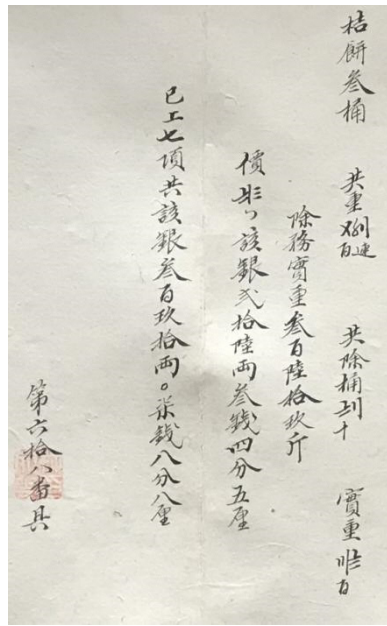 桔餅叁桶 共重 百 連 共除桶 十 實重 百
除務實重叁百陸拾玖斤
價 該銀弍拾陸両叁錢四分五厘
已上七項共該銀叁百玖拾両〇柒錢八分八厘
第六拾八番具